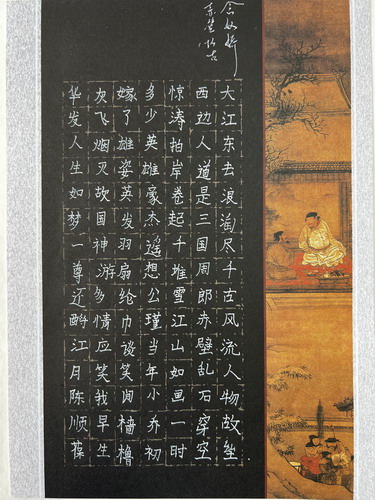 念奴娇
赤壁怀古
大江东去浪淘尽千古风流人物故垒
西边人道是三国周郎赤壁乱石穿空
惊涛拍岸卷起千堆雪江山如画一时
多少英雄豪杰遥想公瑾当年小乔初
嫁了雄姿英发羽扇纶巾谈笑间樯橹
灰飞烟灭故国神游多情应笑我早生
华发人生如梦一尊还酹江月陈顺葆